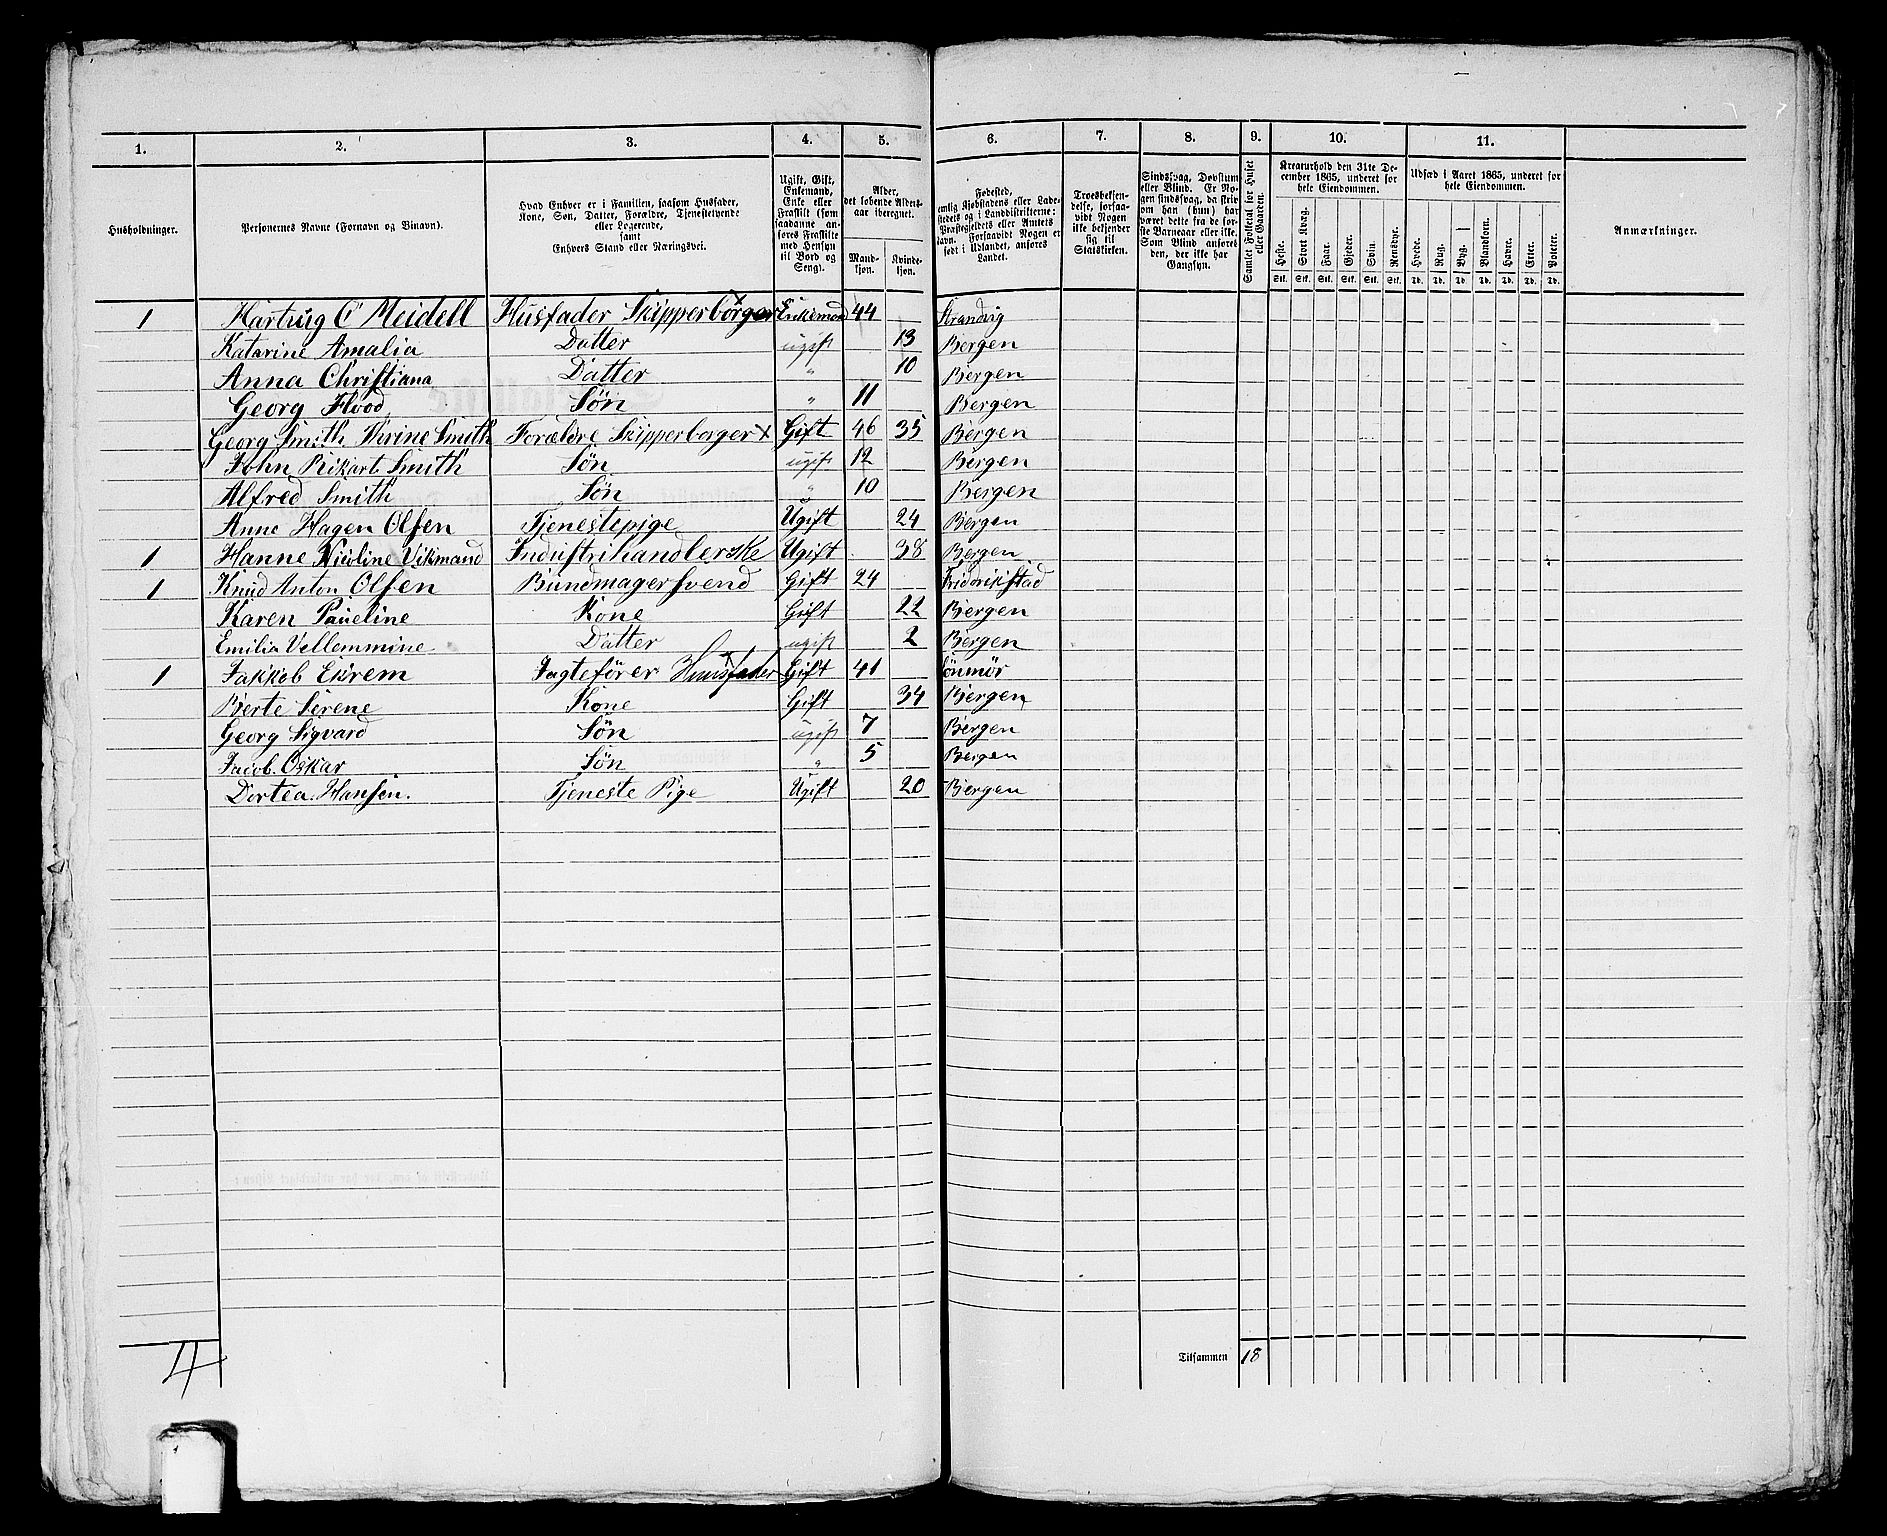 1. 2. 3. 4. 5. 6. 7. 8. 9. 10. 11.
Husholdninger.
Personernes Navne (Fornavn og Binavn).
Hvad Enhver er i Familien, saasom Husfader,
Kone, Søn, Datter, Forældre, Tjenestetyende
eller Logerende,
samt
Enhvers Stand eller Næringsvei.
Ugift, Gift,
Enkemand,
Enke eller
Fraskilt (som
saadanne an-
føres Fraskilte
med Hensyn
til Bord og
Seng).
Alder,
det løbende Alders-
aar iberegnet.
Mand-
kjøn.
Kvinde-
kjøn.
Fødested,
Kjøbstadens eller Lade-
stedets og i Landdistrikterne:
Præstegjeldets eller Amtets
Navn. Forsaavidt Nogen er
født i Udlandet, anføres
Landet.
Troesbekjen-
delse, forsaa-
vidt Nogen
ikke bekjender
sig til
Statskirken.
Sindssvag, Døvstum
eller Blind. Er No-
gen sindssvag, da skriv
om han (hun) har
været dette fra de før-
ste Barneaar eller ikke.
Som Blind anføres
den, der ikke har
Gangsyn.
Samlet Folketal for Huset
eller Gaarden.
Kreaturhold den 31te De-
cember 1865, underet for
hele Eiendommen.
Heste. Stort Kvæg. Faar. Gjeder. Svin. Rensdyr.
Stk. Stk. Stk. Stk. Stk. Stk.
Udsæd i Aaret 1865, underet for
hele Eiendommen.
Hvede. Rug. Byg. Blandkorn. Havre. Erter. Poteter.
Td. Td. Td. Td. Td. Td. Td.
Anmærkninger.
1 Hartvig C Meidell Husfader Skipperborger Enkemand 44 Strandvig
Katarine Amalia Datter ugift 13 Bergen
Anna Christiana Datter " 10 Bergen
Georg Flood Søn " 11 Bergen
Georg Smith Thrine Smith Forældre Skipperborger Gift 46 35 Bergen
John Rikart Smith Søn ugift 12 Bergen
Alfred Smith Søn " 10 Bergen
Anne Hagen Olsen Tjenestepige Ugift 24 Bergen
1 Hanne Nicoline Vikmand Industrihandlerske Ugift 38 Bergen
1 Knud Anton Olsen Bundmagersvend Gift 24 Fridrikstad
Karen Paueline Kone Gift 22 Bergen
Emilia Vellemmine Datter ugift 2 Bergen
1 Jakkob Ekrem Jagtefører Huusfader Gift 41 Sönmör
Berte Serene Kone Gift 34 Bergen
Georg Sigvard Søn ugift 7 Bergen
Jacob Oskar Søn " 5 Bergen
Dortea Hansen. Tjeneste Pige Ugift 20 Bergen
4 Tilsammen 18